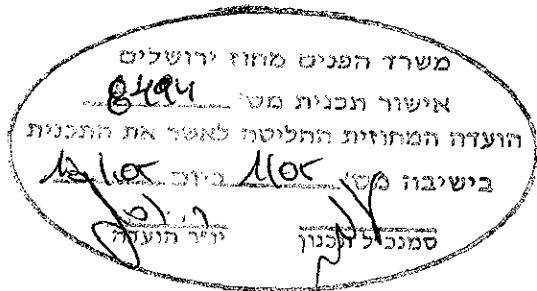 משרד הפנים מחוז ירושלים
אישור תכנית מס' 8494
הועדה המחוזית החליטה לאשר את התכנית
בישיבה מס' 1/05 ביום
סמנכ"ל תכנון יו"ר הועדה